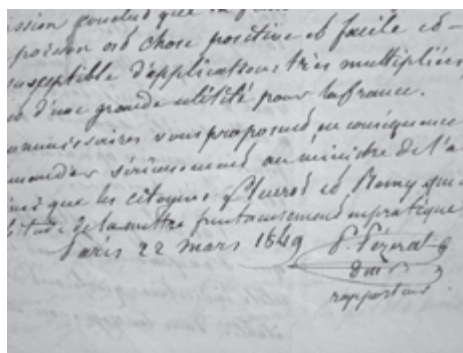 ssion conclud que la
poisson est chose positive et facile et
susceptible d'applications très multipliées
d'une grande utilité pour la france.
ommissaires vous proposend en conséquence
mander sérieusement au ministre de l'a
que les citoyens et Remy qui
de la mettre en pratique
Paris 22 mars 1849
rapporteur